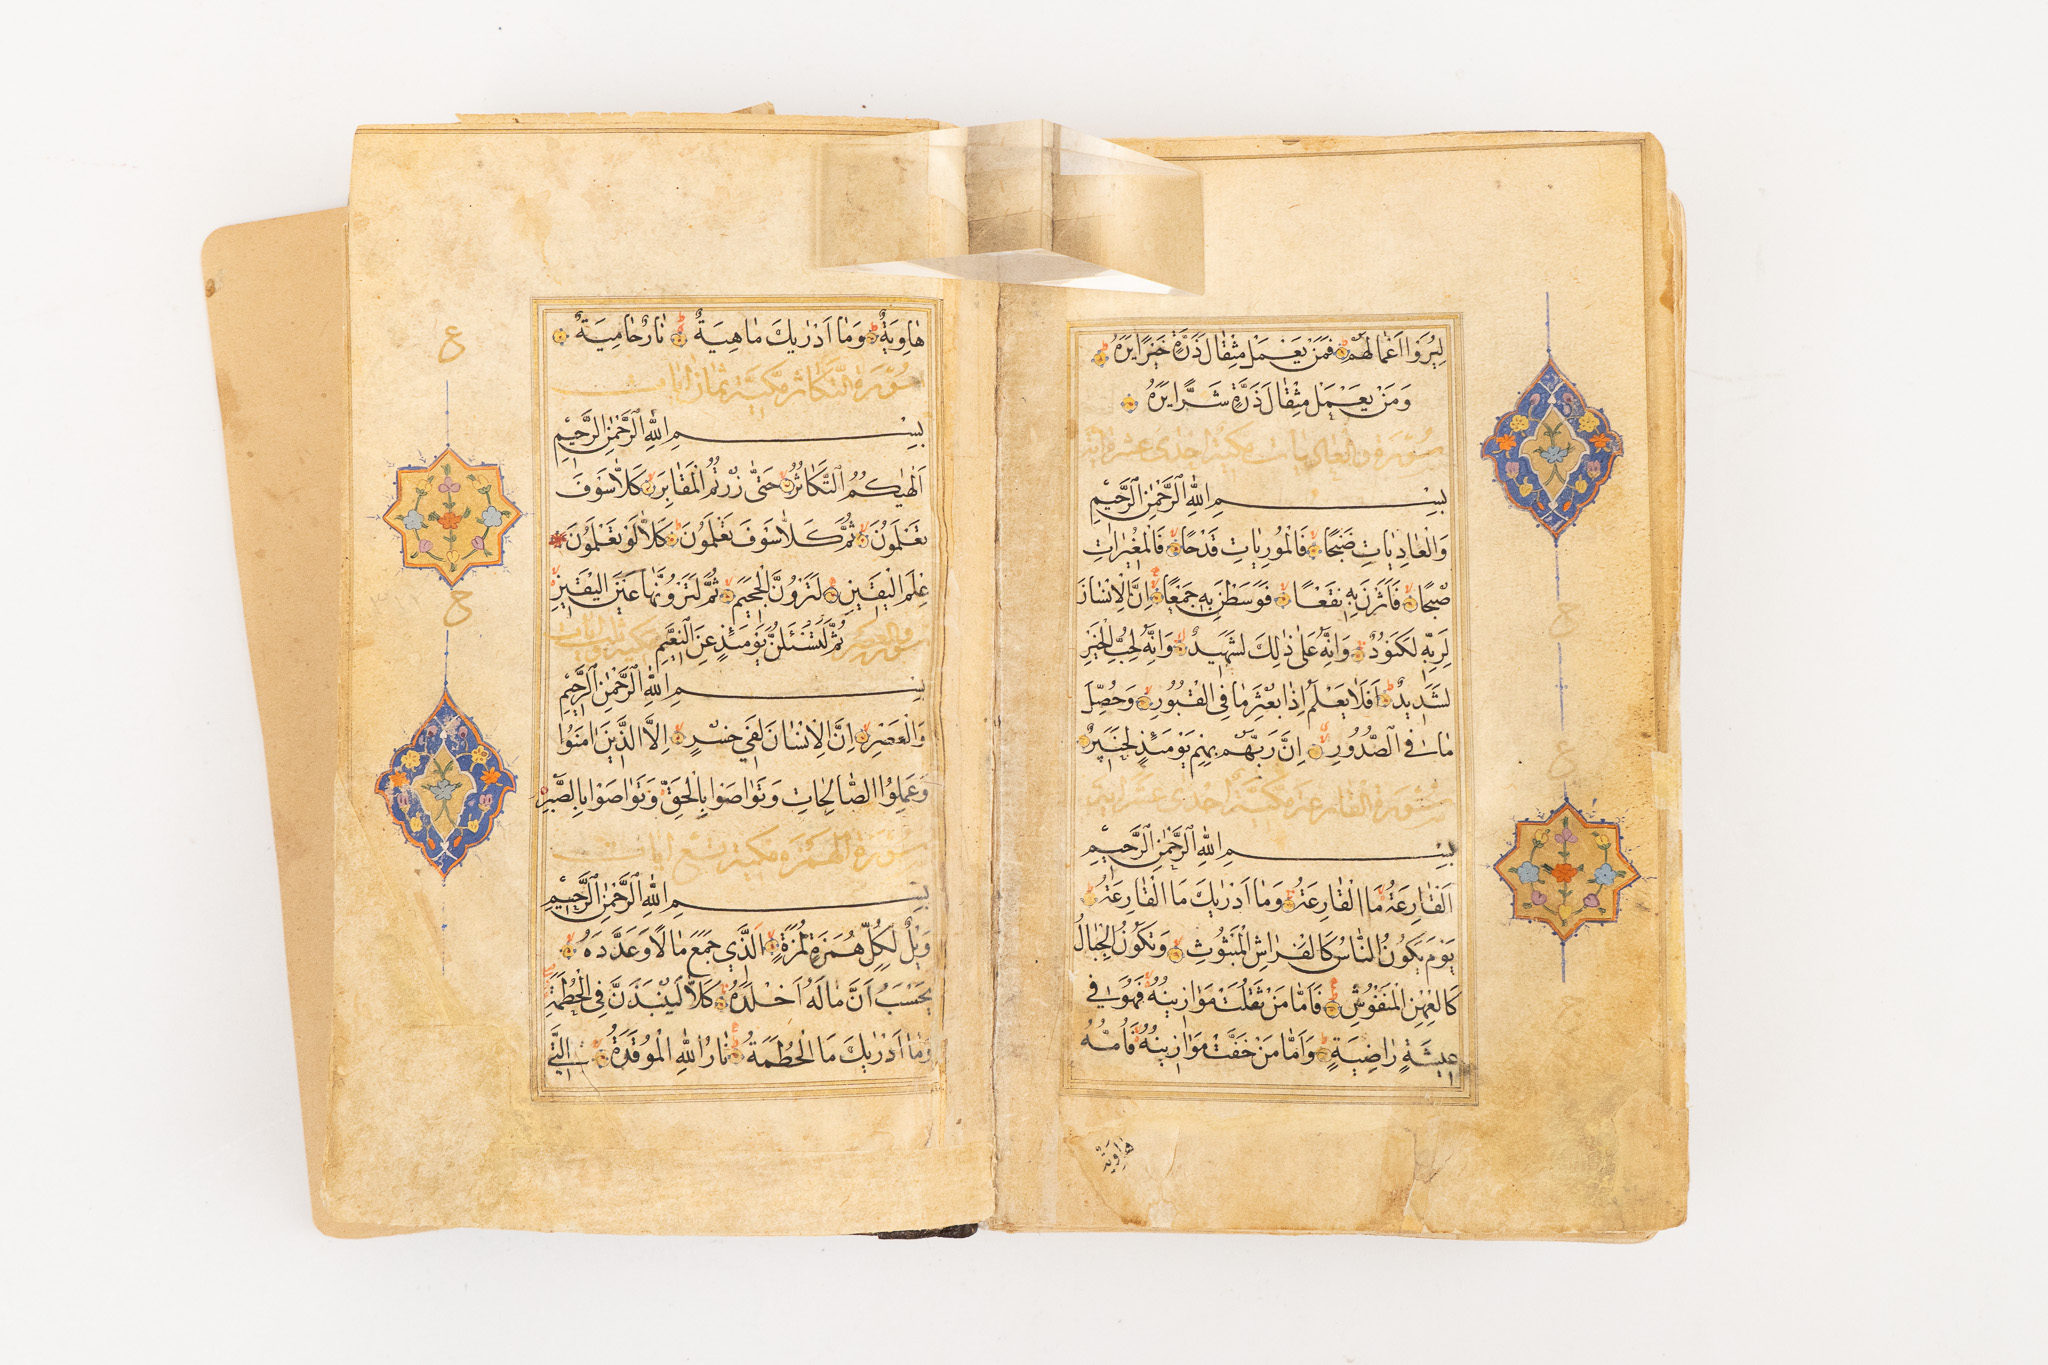 لِيُرَوْا اَعْمَالَهُمْ فَمَنْ يَعْمَلْ مِثْقَالَ ذَرَّةٍ خَيْرًا يَرَهُ
وَمَنْ يَعْمَلْ مِثْقَالَ ذَرَّةٍ شَرًّا يَرَهُ
سُورَة والعاديات مكية احدى عشرة اية
بِسْمِ اللهِ الرَّحْمٰنِ الرَّحِيمِ
وَالْعَادِيَاتِ ضَبْحًا فَالْمُورِيَاتِ قَدْحًا فَالْمُغِيرَاتِ
صُبْحًا فَاَثَرْنَ بِهِ نَقْعًا فَوَسَطْنَ بِهِ جَمْعًا اِنَّ الْاِنْسَانَ
لِرَبِّهِ لَكَنُودٌ وَاِنَّهُ عَلٰى ذٰلِكَ لَشَهِيدٌ وَاِنَّهُ لِحُبِّ الْخَيْرِ
لَشَدِيدٌ اَفَلَا يَعْلَمُ اِذَا بُعْثِرَ مَا فِى الْقُبُورِ وَحُصِّلَ
مَا فِى الصُّدُورِ اِنَّ رَبَّهُمْ بِهِمْ يَوْمَئِذٍ لَخَبِيرٌ
سُورَة القارعة مكية احدى عشرة اية
بِسْمِ اللهِ الرَّحْمٰنِ الرَّحِيمِ
اَلْقَارِعَةُ مَا الْقَارِعَةُ وَمَا اَدْرٰيكَ مَا الْقَارِعَةُ
يَوْمَ يَكُونُ النَّاسُ كَالْفَرَاشِ الْمَبْثُوثِ وَتَكُونُ الْجِبَالُ
كَالْعِهْنِ الْمَنْفُوشِ فَاَمَّا مَنْ ثَقُلَتْ مَوَازِينُهُ فَهُوَ فِى
عِيشَةٍ رَاضِيَةٍ وَاَمَّا مَنْ خَفَّتْ مَوَازِينُهُ فَاُمُّهُ
هَاوِيَةٌ
هَاوِيَةٌ وَمَا اَدْرٰيكَ مَا هِيَةٌ نَارٌ حَامِيَةٌ
سُورَة التَّكَاثُر مَكِّيَّة ثمان ايات
بِسْمِ اللهِ الرَّحْمٰنِ الرَّحِيمِ
اَلْهٰيكُمُ التَّكَاثُرُ حَتّٰى زُرْتُمُ الْمَقَابِرَ كَلَّا سَوْفَ
تَعْلَمُونَ ثُمَّ كَلَّا سَوْفَ تَعْلَمُونَ كَلَّا لَوْ تَعْلَمُونَ
عِلْمَ الْيَقِينِ لَتَرَوُنَّ الْجَحِيمَ ثُمَّ لَتَرَوُنَّهَا عَيْنَ الْيَقِينِ
ثُمَّ لَتُسْئَلُنَّ يَوْمَئِذٍ عَنِ النَّعِيمِ
سورة والعصر مكية ثلث ايات
بِسْمِ اللهِ الرَّحْمٰنِ الرَّحِيمِ
وَالْعَصْرِ اِنَّ الْاِنْسَانَ لَفِي خُسْرٍ اِلَّا الَّذِينَ اٰمَنُوا
وَعَمِلُوا الصَّالِحَاتِ وَتَوَاصَوْا بِالْحَقِّ وَتَوَاصَوْا بِالصَّبْرِ
سُورَة الهُمَزَة مكية تسع ايات
بِسْمِ اللهِ الرَّحْمٰنِ الرَّحِيمِ
وَيْلٌ لِكُلِّ هُمَزَةٍ لُمَزَةٍ اَلَّذِي جَمَعَ مَالًا وَعَدَّدَهُ
يَحْسَبُ اَنَّ مَالَهُ اَخْلَدَهُ كَلَّا لَيُنْبَذَنَّ فِى الْحُطَمَةِ
وَمَا اَدْرٰيكَ مَا الْحُطَمَةُ نَارُ اللهِ الْمُوقَدَةُ الَّتِي